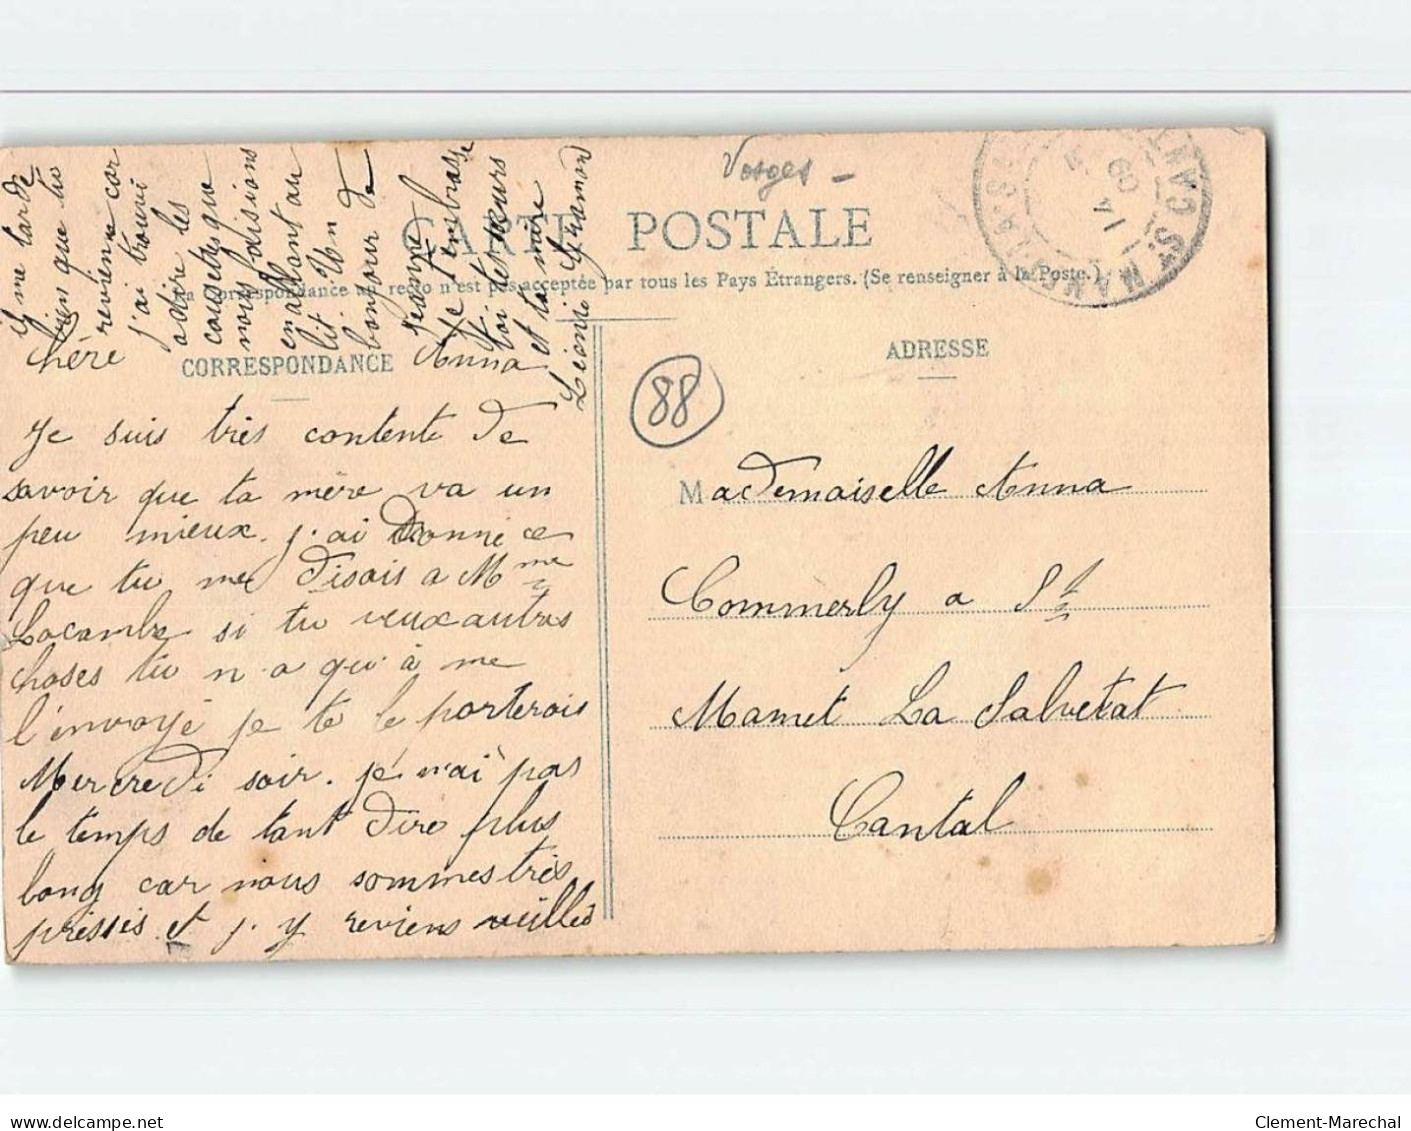 Vosges -
CARTE POSTALE
La Correspondance au recto n'est pas acceptée par tous les Pays Étrangers. (Se renseigner à la Poste.)
CORRESPONDANCE
ADRESSE
88
Chère Anna
Je suis très contente de
savoir que ta mère va un
peu mieux. j. ai donné ce
que tu me disais a Mme
Lacambre si tu veux autres
choses tu n a qu à me
l'envoyé je te le porterois
Mercredi soir. je n'ai pas
le temps de tant dire plus
long car nous sommes très
pressés et j. y reviens veilles
il me tarde
bien que tu
revienne car
j'ai trouvé
a dire les
causetes que
nous faisions
en allant au
lit. Un
bonjour de
Jeanne
Je t'embrasse
toi ter sœurs
et ta mère
Leonie Gramond
Mademoiselle Anna
Commerly a St
Mamet La Salvetat
Cantal
14
09
CANTAL